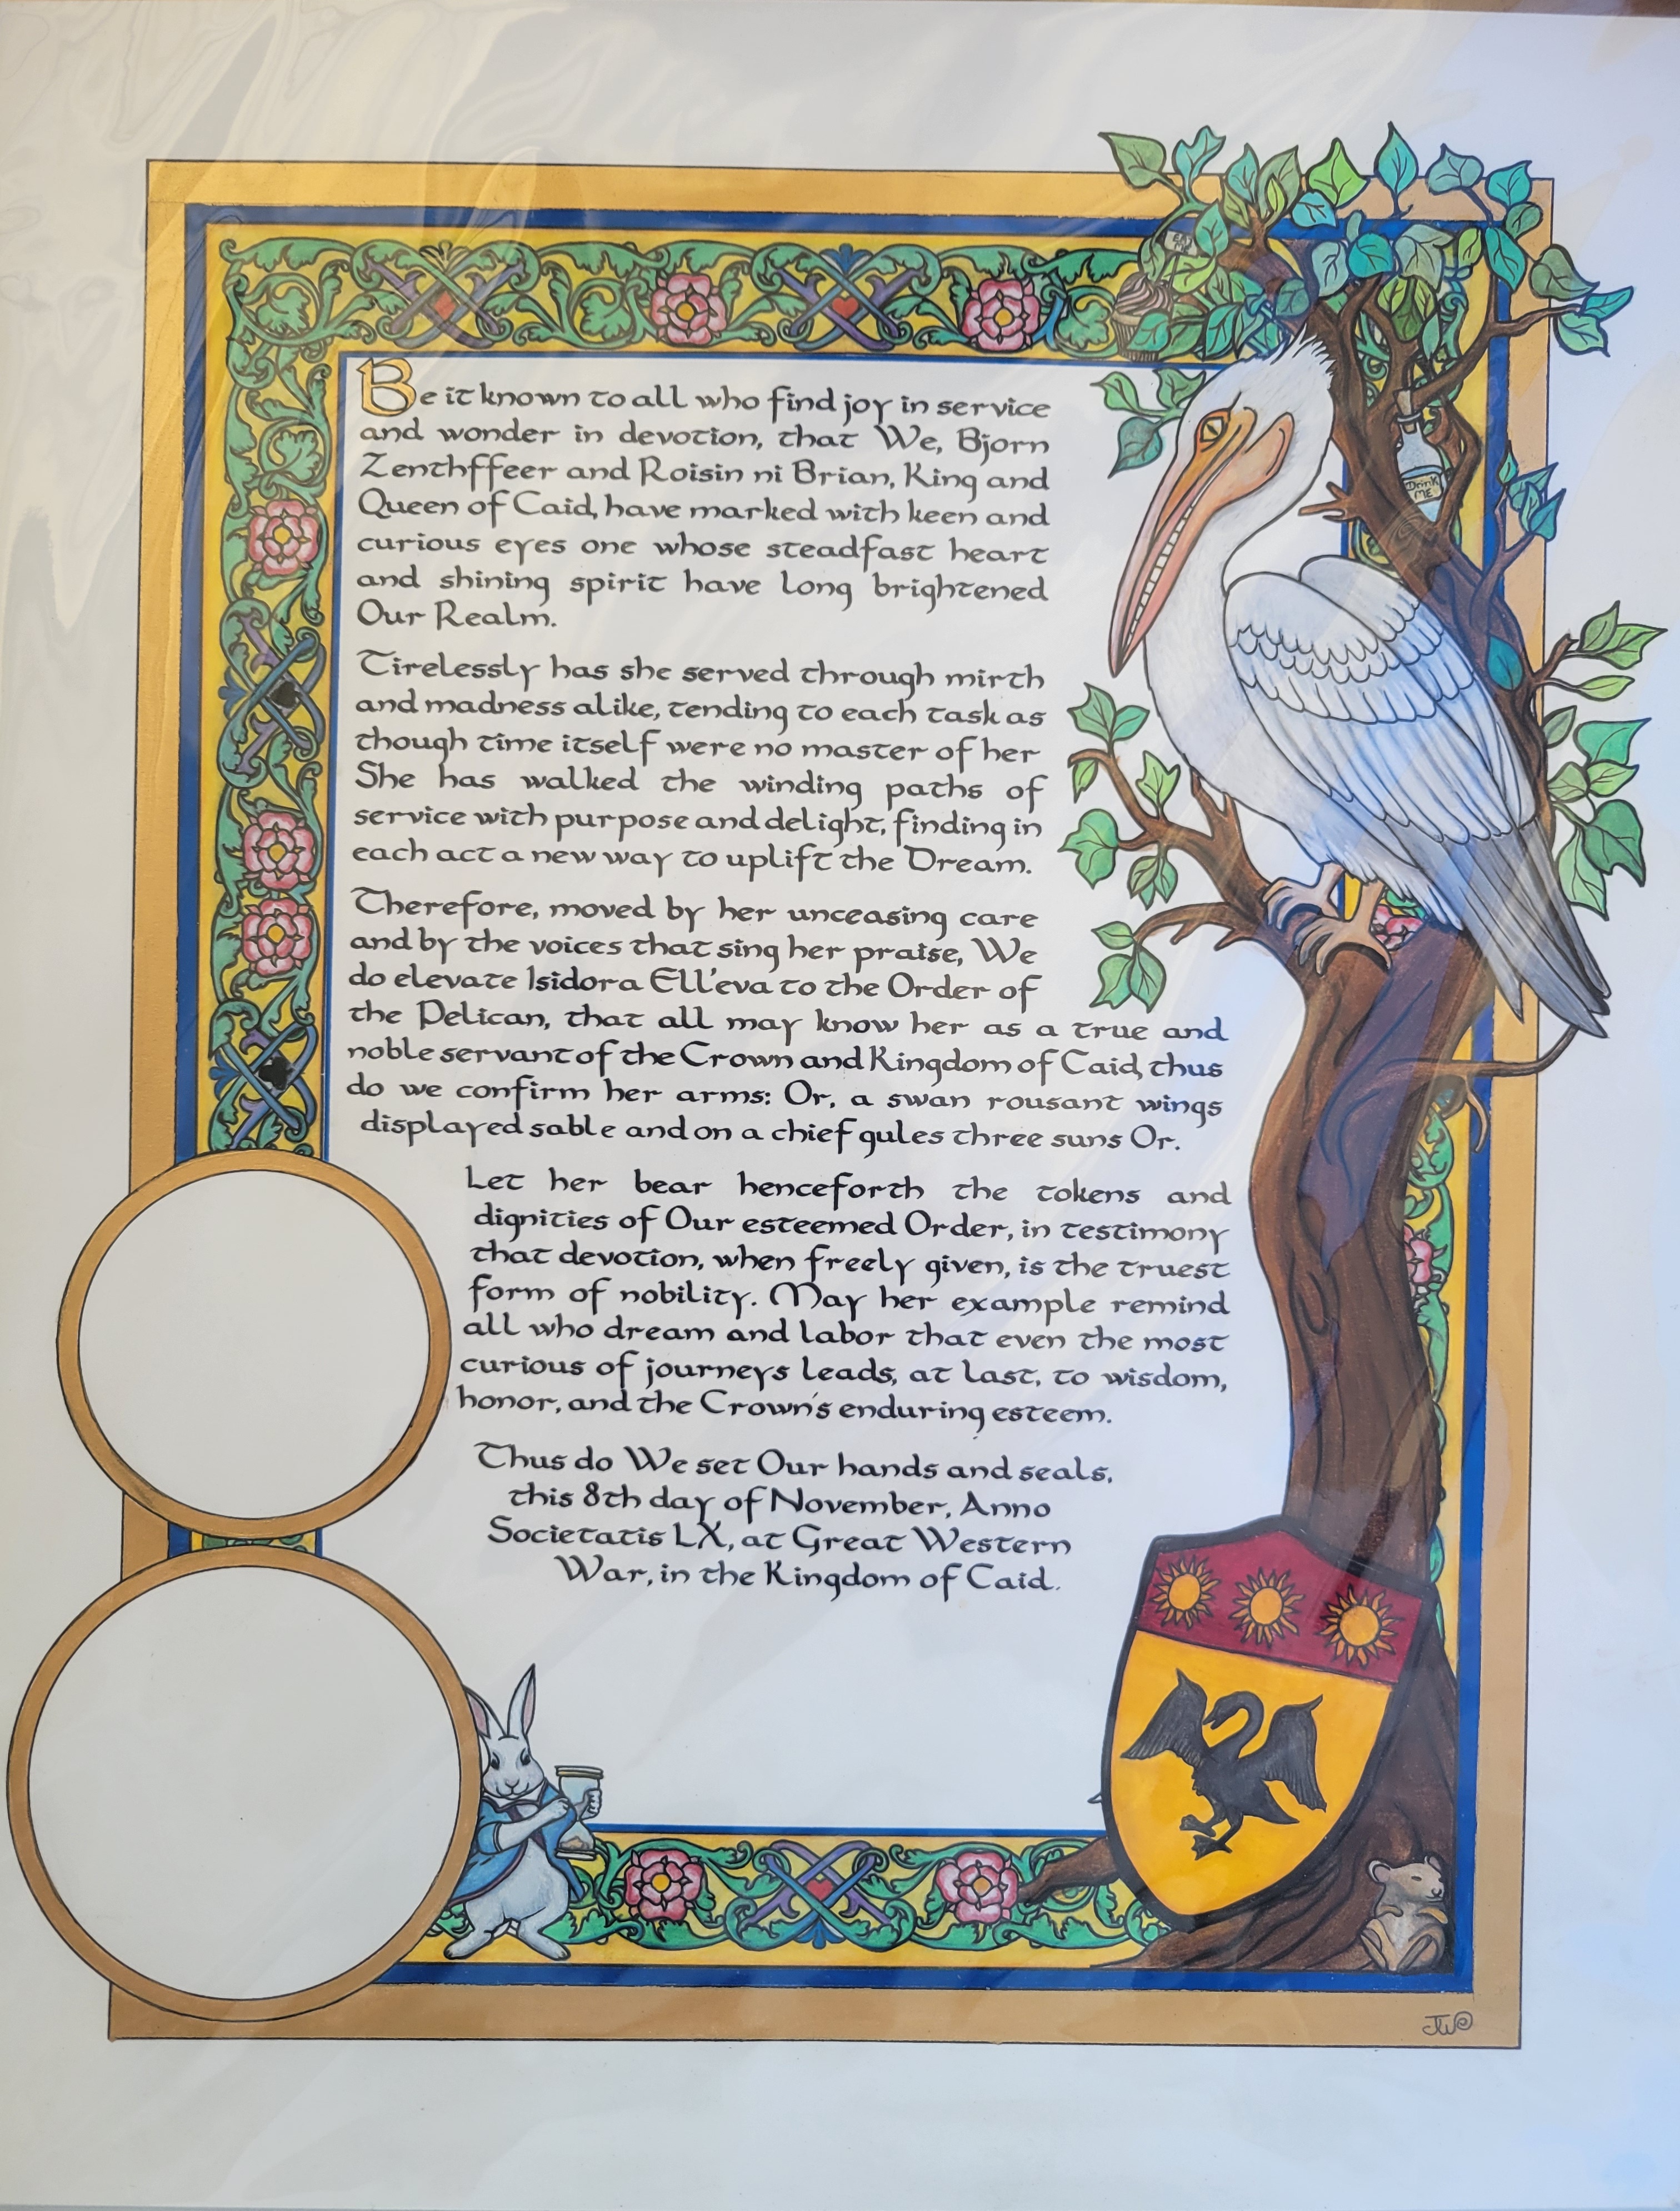 EAT
ME
Drink
ME
Be it known to all who find joy in service
and wonder in devotion, that We, Bjorn
Zenthffeer and Roisin ni Brian, King and
Queen of Caid, have marked with keen and
curious eyes one whose steadfast heart
and shining spirit have long brightened
Our Realm.
Tirelessly has she served through mirth
and madness alike, tending to each task as
though time itself were no master of her
She has walked the winding paths of
service with purpose and delight, finding in
each act a new way to uplift the Dream.
Therefore, moved by her unceasing care
and by the voices that sing her praise, We
do elevate Isidora Ell'eva to the Order of
the Pelican, that all may know her as a true and
noble servant of the Crown and Kingdom of Caid, thus
do we confirm her arms: Or, a swan rousant wings
displayed sable and on a chief gules three suns Or.
Let her bear henceforth the tokens and
dignities of Our esteemed Order, in testimony
that devotion, when freely given, is the truest
form of nobility. May her example remind
all who dream and labor that even the most
curious of journeys leads, at last, to wisdom,
honor, and the Crown's enduring esteem.
Thus do We set Our hands and seals,
this 8th day of November, Anno
Societatis LX, at Great Western
War, in the Kingdom of Caid.